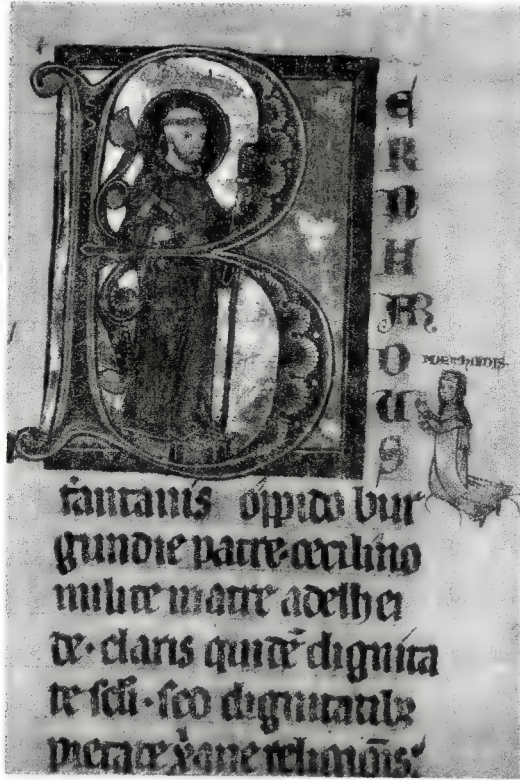 B
E
R
N
H
AR
D
U
S
fantanis oppido bur
gundie patre·tecelino
milite matre adelhei
de·claris quidē dignita
te scli·sed dignitatis
pietate